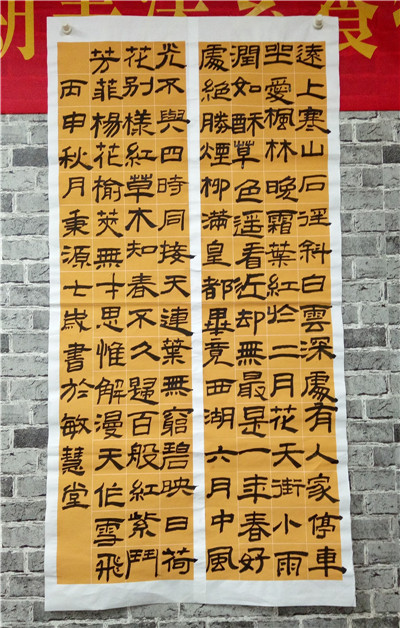 遠上寒山石徑斜白雲深處有人家停車
坐愛楓林晚霜葉紅於二月花天街小雨
潤如酥草色遥看近却無最是一年春好
處絕勝煙柳滿皇都畢竟西湖六月中風
光不與四時同接天連葉無窮碧映日荷
花別樣紅草木知春不久歸百般紅紫鬥
芳菲楊花榆莢無才思惟解漫天作雪飛
丙申秋月秉源七歲書於敏慧堂